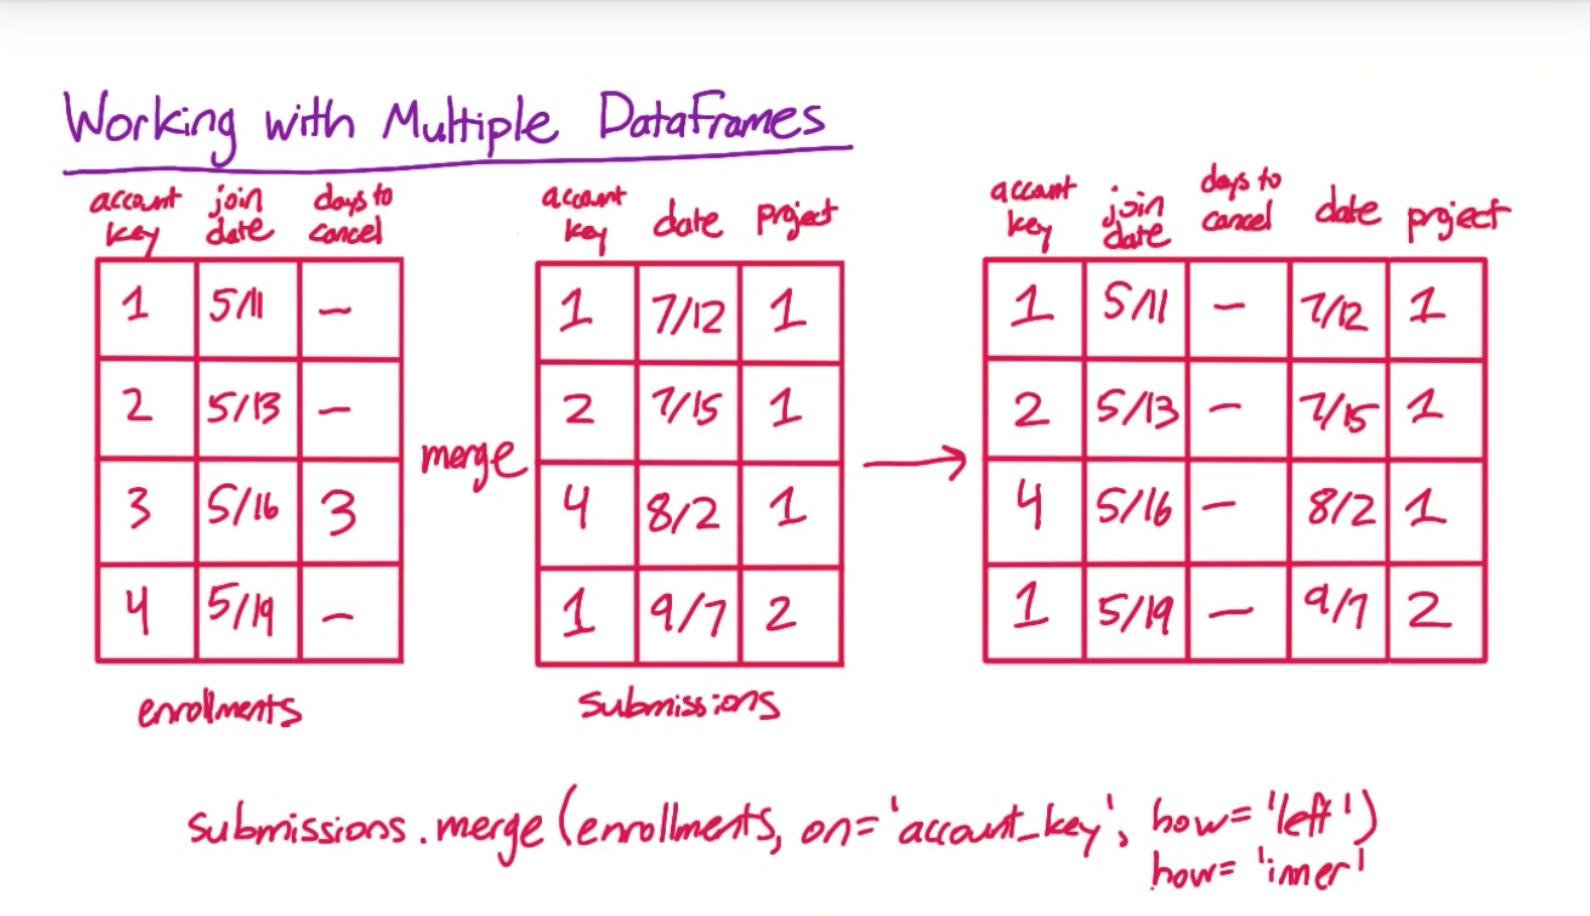 Working with Multiple DataFrames
account key join date days to cancel
1 5/11 -
2 5/13 -
3 5/16 3
4 5/19 -
enrollments
merge
account key date project
1 7/12 1
2 7/15 1
4 8/2 1
1 9/7 2
submissions
account key join date days to cancel date project
1 5/11 - 7/12 1
2 5/13 - 7/15 1
4 5/16 - 8/2 1
1 5/19 - 9/7 2
submissions.merge(enrollments, on='account_key', how='left')
how='inner'